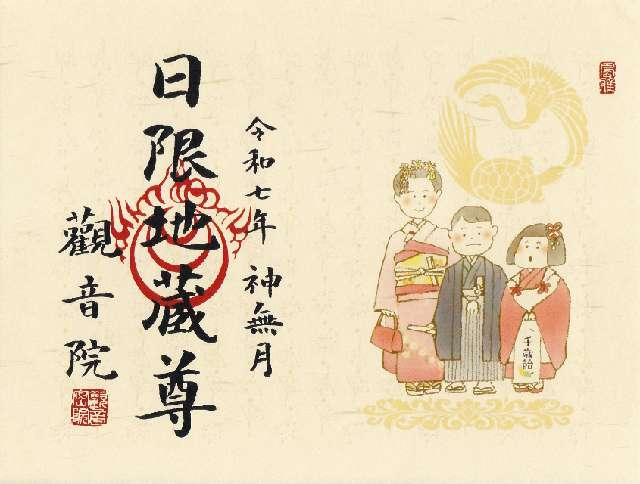 令和七年 神無月
日限地蔵尊
觀音院
千歳飴